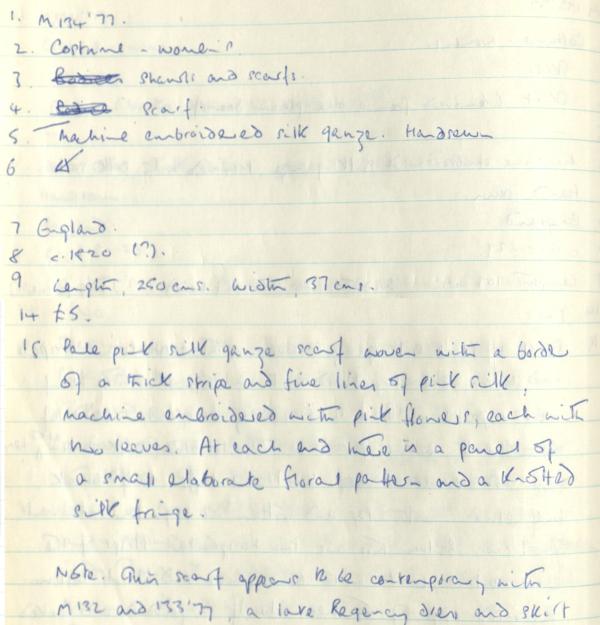 1. M134'77.
2. Costume - women's.
3 shawls and scarfs.
4. Scarf
5. Machine embroidered silk gauze. Handsewn
6
7 England.
8 c.1820 (?).
9 Length, 250 cms. Width, 37 cms.
14 £5.
15 Pale pink silk gauze scarf woven with a border
of a thick stripe and fine lines of pink silk,
machine embroidered with pink flowers, each with
two leaves. At each end there is a panel of
a small elaborate floral pattern and a knotted
silk fringe.
Note. This scarf appears to be contemporary with
M132 and 133'77, a late Regency dress and skirt